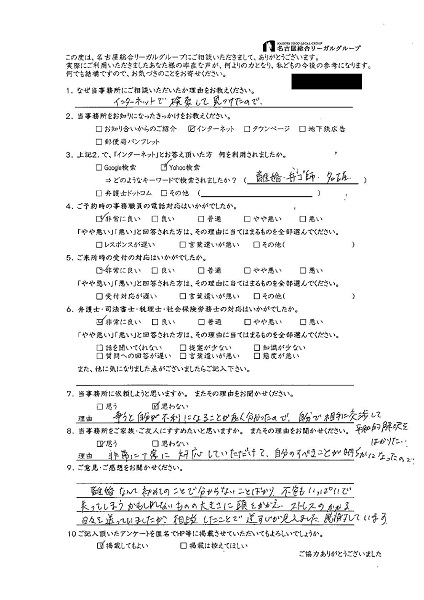 NAGOYA SOGO LEGAL GROUP
名古屋総合リーガルグループ
この度は、名古屋総合リーガルグループにご相談いただきまして、ありがとうございます。
実際にご利用いただきましたあなた様の率直な声が、何よりの力となり、私どもの今後の参考になります。
何でも結構ですので、お気づきのことをお寄せください。
1. なぜ当事務所にご相談いただいたか理由をお教えください。
インターネットで検索して見つけたので。
2. 当事務所をお知りになったきっかけをお教えください。
□お知り合いからのご紹介 ☑インターネット □タウンページ □地下鉄広告
□郵便局パンフレット
3. 上記2. で、「インターネット」とお答え頂いた方 何を利用されましたか。
□Google検索 ☑Yahoo検索
⇒どのようなキーワードで検索されましたか？（ 離婚・弁護師・名古屋 ）
□弁護士ドットコム □その他（ ）
4. ご予約時の事務職員の電話対応はいかがでしたか。
☑非常に良い □良い □普通 □やや悪い □悪い
「やや悪い」「悪い」と回答された方は、その理由に当てはまるものを全部選んでください。
□レスポンスが遅い □言葉遣いが悪い □その他( )
5. ご来所時の受付の対応はいかがでしたか。
☑非常に良い □良い □普通 □やや悪い □悪い
「やや悪い」「悪い」と回答された方は、その理由に当てはまるものを全部選んでください。
□受付対応が遅い □言葉遣いが悪い □その他( )
6. 弁護士・司法書士・税理士・社会保険労務士の対応はいかがでしたか。
☑非常に良い □良い □普通 □やや悪い □悪い
「やや悪い」「悪い」と回答された方は、その理由に当てはまるものを全部選んでください。
□話を聞いてくれない □提案が少ない □知識が少ない
□質問への回答が遅い □言葉遣いが悪い □態度が悪い
また、他に気になりました点がございましたらご記入下さい。
7. 当事務所に依頼しようと思いますか。 またその理由をお聞かせください。
□思う ☑思わない
理由 争うと自分が不利になることが分かったので、自分で相手に交渉して
和的解決を
はかりたい
8. 当事務所をご家族・ご友人にすすめたいと思いますか。 またその理由をお聞かせください。
☑思う □思わない
理由 非常に丁寧に対応していただけて、自分のすべきことが明らかになったので。
9. ご意見・ご感想をお聞かせください。
離婚なんて初めてのことで分からないことばかり、不安もいっぱいで
失ってしまうかもしれないものの大きさに頭をかかえ、ストレスのかかる
日々を送っていましたが、相談したことで道すじが見えました。感謝しています
10 ご記入頂いたアンケートを匿名でHP等に掲載させていただいてもよろしいでしょうか。
☑掲載してもよい □掲載は控えてほしい
ご協力ありがとうございました